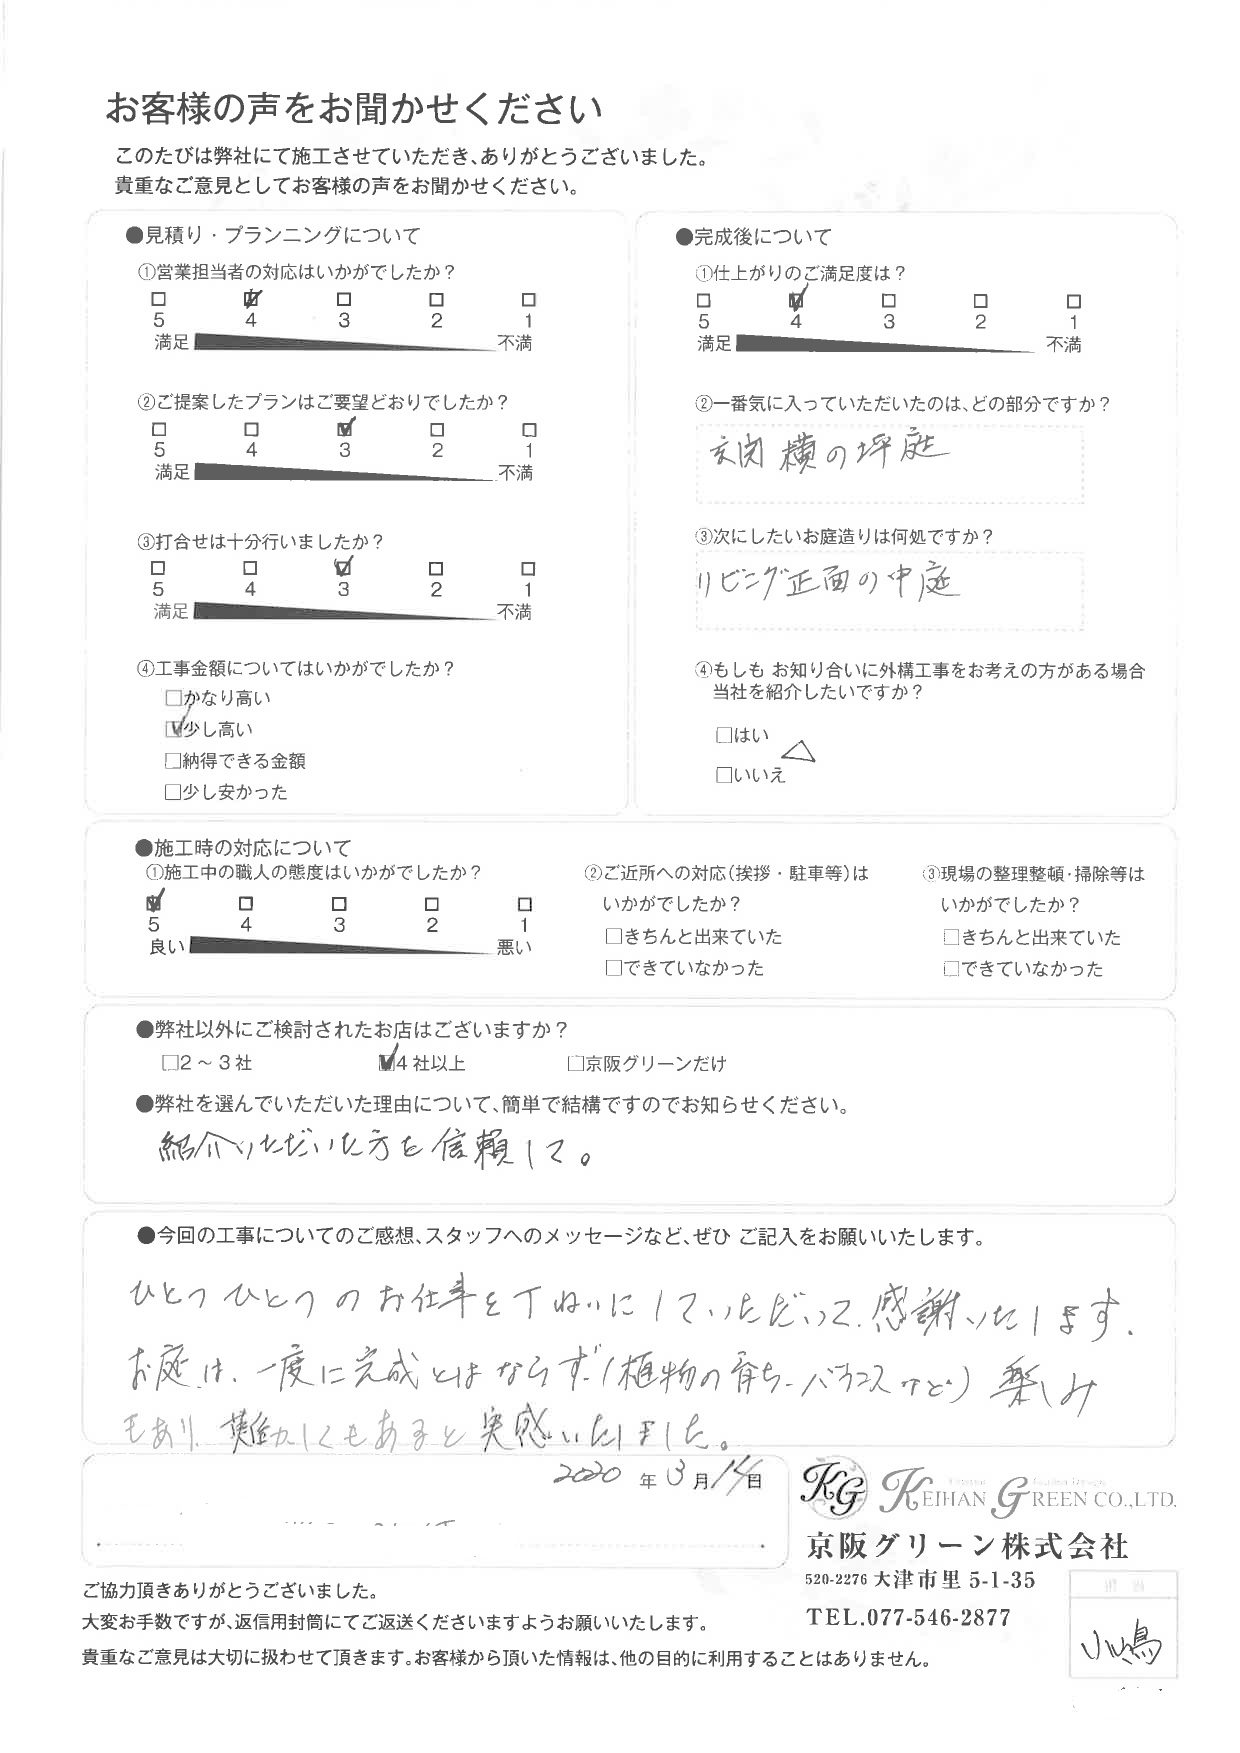 お客様の声をお聞かせください
このたびは弊社にて施工させていただき、ありがとうございました。
貴重なご意見としてお客様の声をお聞かせください。
●見積り・プランニングについて
①営業担当者の対応はいかがでしたか？
□ ☑ □ □ □
5 4 3 2 1
満足 不満
②ご提案したプランはご要望どおりでしたか？
□ □ ☑ □ □
5 4 3 2 1
満足 不満
③打合せは十分行いましたか？
□ □ ☑ □ □
5 4 3 2 1
満足 不満
④工事金額についてはいかがでしたか？
□かなり高い
☑少し高い
□納得できる金額
□少し安かった
●完成後について
①仕上がりのご満足度は？
□ ☑ □ □ □
5 4 3 2 1
満足 不満
②一番気に入っていただいたのは、どの部分ですか？
玄関横の坪庭
③次にしたいお庭造りは何処ですか？
リビング正面の中庭
④もしも お知り合いに外構工事をお考えの方がある場合
当社を紹介したいですか？
□はい
△
□いいえ
●施工時の対応について
①施工中の職人の態度はいかがでしたか？
☑ □ □ □ □
5 4 3 2 1
良い 悪い
②ご近所への対応（挨拶・駐車等）は
いかがでしたか？
□きちんと出来ていた
□できていなかった
③現場の整理整頓・掃除等は
いかがでしたか？
□きちんと出来ていた
□できていなかった
●弊社以外にご検討されたお店はございますか？
□2～3社 ☑4社以上 □京阪グリーンだけ
●弊社を選んでいただいた理由について、簡単で結構ですのでお知らせください。
紹介いただいた方を信頼して。
●今回の工事についてのご感想、スタッフへのメッセージなど、ぜひ ご記入をお願いいたします。
ひとつひとつのお仕事を丁ねいにしていただいて、感謝いたします。
お庭は、一度に完成とはならず、（植物の育ち、バランスなど）楽しみ
もあり、難しくもあると実感いたしました。
2020年3月14日
KG KEIHAN GREEN CO.,LTD.
京阪グリーン株式会社
520-2276 大津市里 5-1-35
TEL.077-546-2877
小嶋
ご協力頂きありがとうございました。
大変お手数ですが、返信用封筒にてご返送くださいますようお願いいたします。
貴重なご意見は大切に扱わせて頂きます。お客様から頂いた情報は、他の目的に利用することはありません。